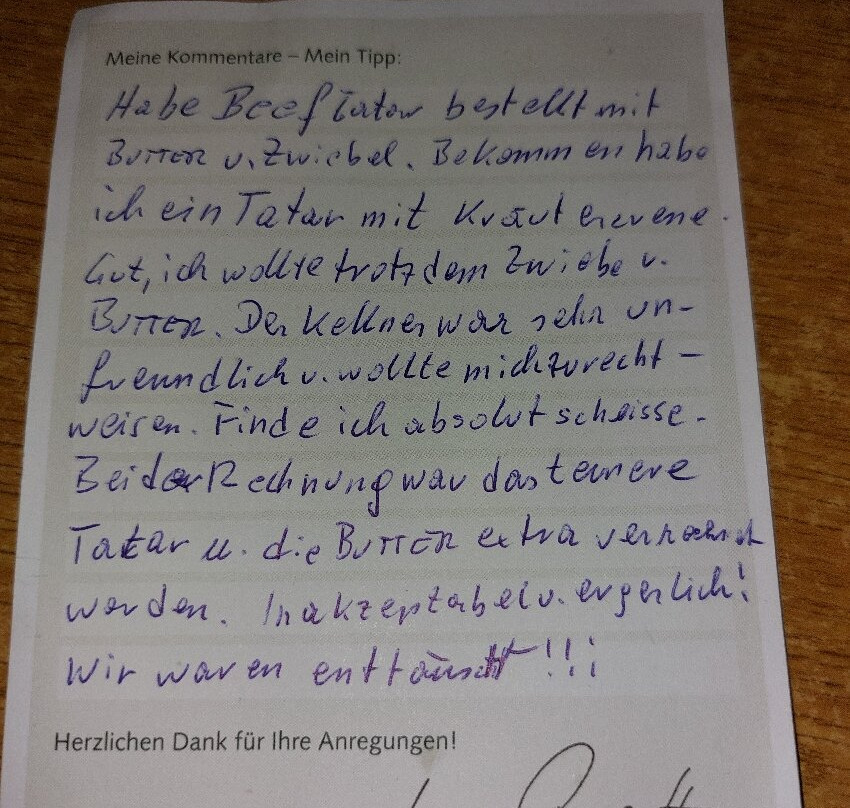 Meine Kommentare – Mein Tipp:
Habe Beef Tatar bestellt mit
BUTTER u. Zwiebel. Bekommen habe
ich ein Tatar mit
Gut, ich wollte trotzdem Zwiebe u.
BUTTER. Der Kellner war sehr un-
freundlich u. wollte mich zurecht-
weisen. Finde ich absolut scheisse.
Bei der Rechnung war das teurere
Tatar u. die BUTTER extra verrechnet
worden. Inakzeptabel u. ergerlich!
Wir waren enttäuscht!!!
Herzlichen Dank für Ihre Anregungen!